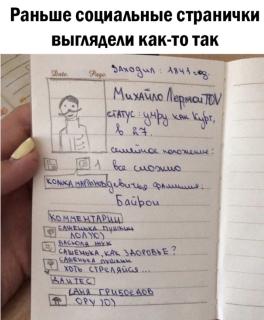 Раньше социальные странички
выглядели как-то так
Date Page
Заходил: 1841 год
Михайло ЛермонTOV
статус: умру как Курт,
в 27.
семейное положение:
1 все сложно
девичья фамилия:
Байрон
КОММЕНТАРИИ
САШЕНЬКА ПУШКИН
ЛОЛ)0)
ВАСЮЛЯ ЖУК
САШЕНЬКА, КАК ЗДОРОВЬЕ?
САШЕНЬКА ПУШКИН
ХОТЬ СТРЕЛЯЙСЯ...
ДАНТЕС
САНЯ ГРИБОЕДОВ
ОРУ )0)